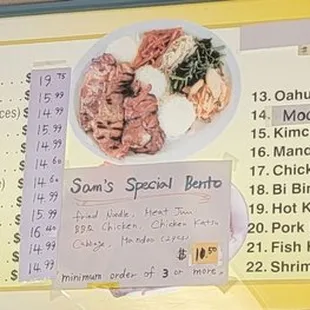 $ 19.75
$ 15.99
ces) $ 14.99
$ 15.99
$ 14.99
$ 14.60
$ 14.60
$ 14.99
$ 15.99
$ 16.40
$ 14.99
$ 14.99
Sam's Special Bento
fried Noodle, Meat Jun
BBQ Chicken, Chicken Katsu
Cabbage, Mandoo (2pcs)
$ 10.50
minimum order of 3 or more,
13. Oahu
14. Moc
15. Kimc
16. Mand
17. Chick
18. Bi Bin
19. Hot K
20. Pork
21. Fish K
22. Shrim